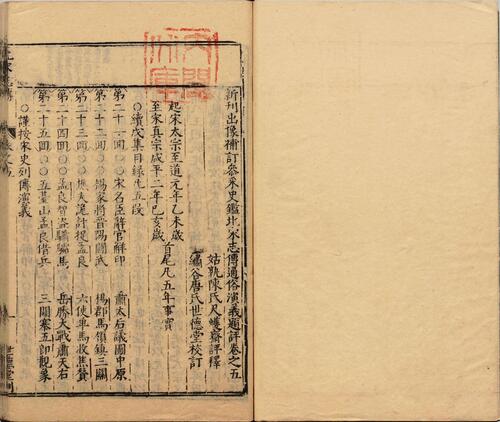 新刊出像補訂參采史鑑北宋志傳通俗演義題評卷之五
姑孰陳氏尺蠖齋評釋
繡谷唐氏世德堂校訂
起宋太宗至道元年乙未歲
至宋真宗咸平二年己亥歲
首尾凡五年事實
○續戊集目錄 五段
第二十一回 宋名臣辭官解印 蕭太后議圖中原
第二十二回○○楊家將晉陽鬭武 楊郡馬領鎮三關
第二十三回○○ 孟良 六使單馬收焦贊
第二十四回○○孟良智盜驌驦馬 岳勝大戰蕭天右
第二十五回○○五臺山孟良借兵 三關寨五郎觀象
○謹按宋史列傳演義
卷之五
內閣文庫